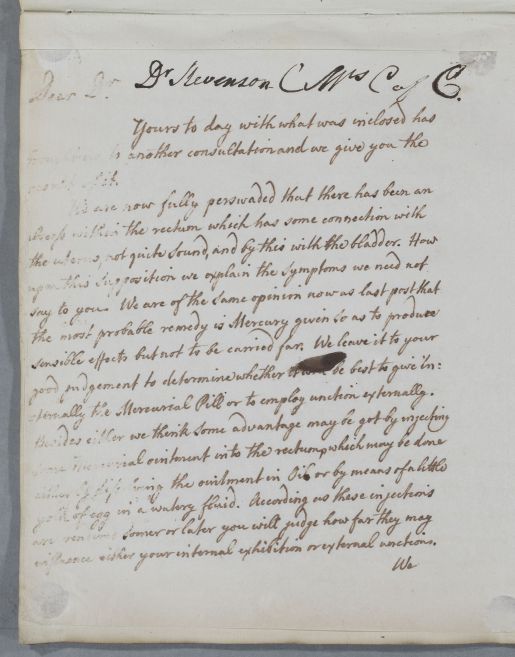 Dr Stevenson C Mrs Ca C.
Dear Dr.
Yours to day with what was inclosed has
another consultation and we give you the
result of it.
We are now fully perswaded that there has been an
abcess within the rectum which has some connection with
the uterus, not quite sound, and by this with the bladder. How
upon this supposition we explain the symptoms we need not
say to you. We are of the same opinion now as last post that
the most probable remedy is Mercury given so as to produce
sensible effects but not to be carried far. We leave it to your
good judgement to determine whether it will be best to give in:
:ternally the Mercurial Pill or to employ unction externally.
Besides either we think some advantage may be got by injecting
some mercurial ointment into the rectum, which may be done
either by the ointment in Oil or by means of a little
yolk of egg in a watery fluid. According as these injections
are sooner or later you will judge how far they may
influence either your internal exhibition or external unctions.
We